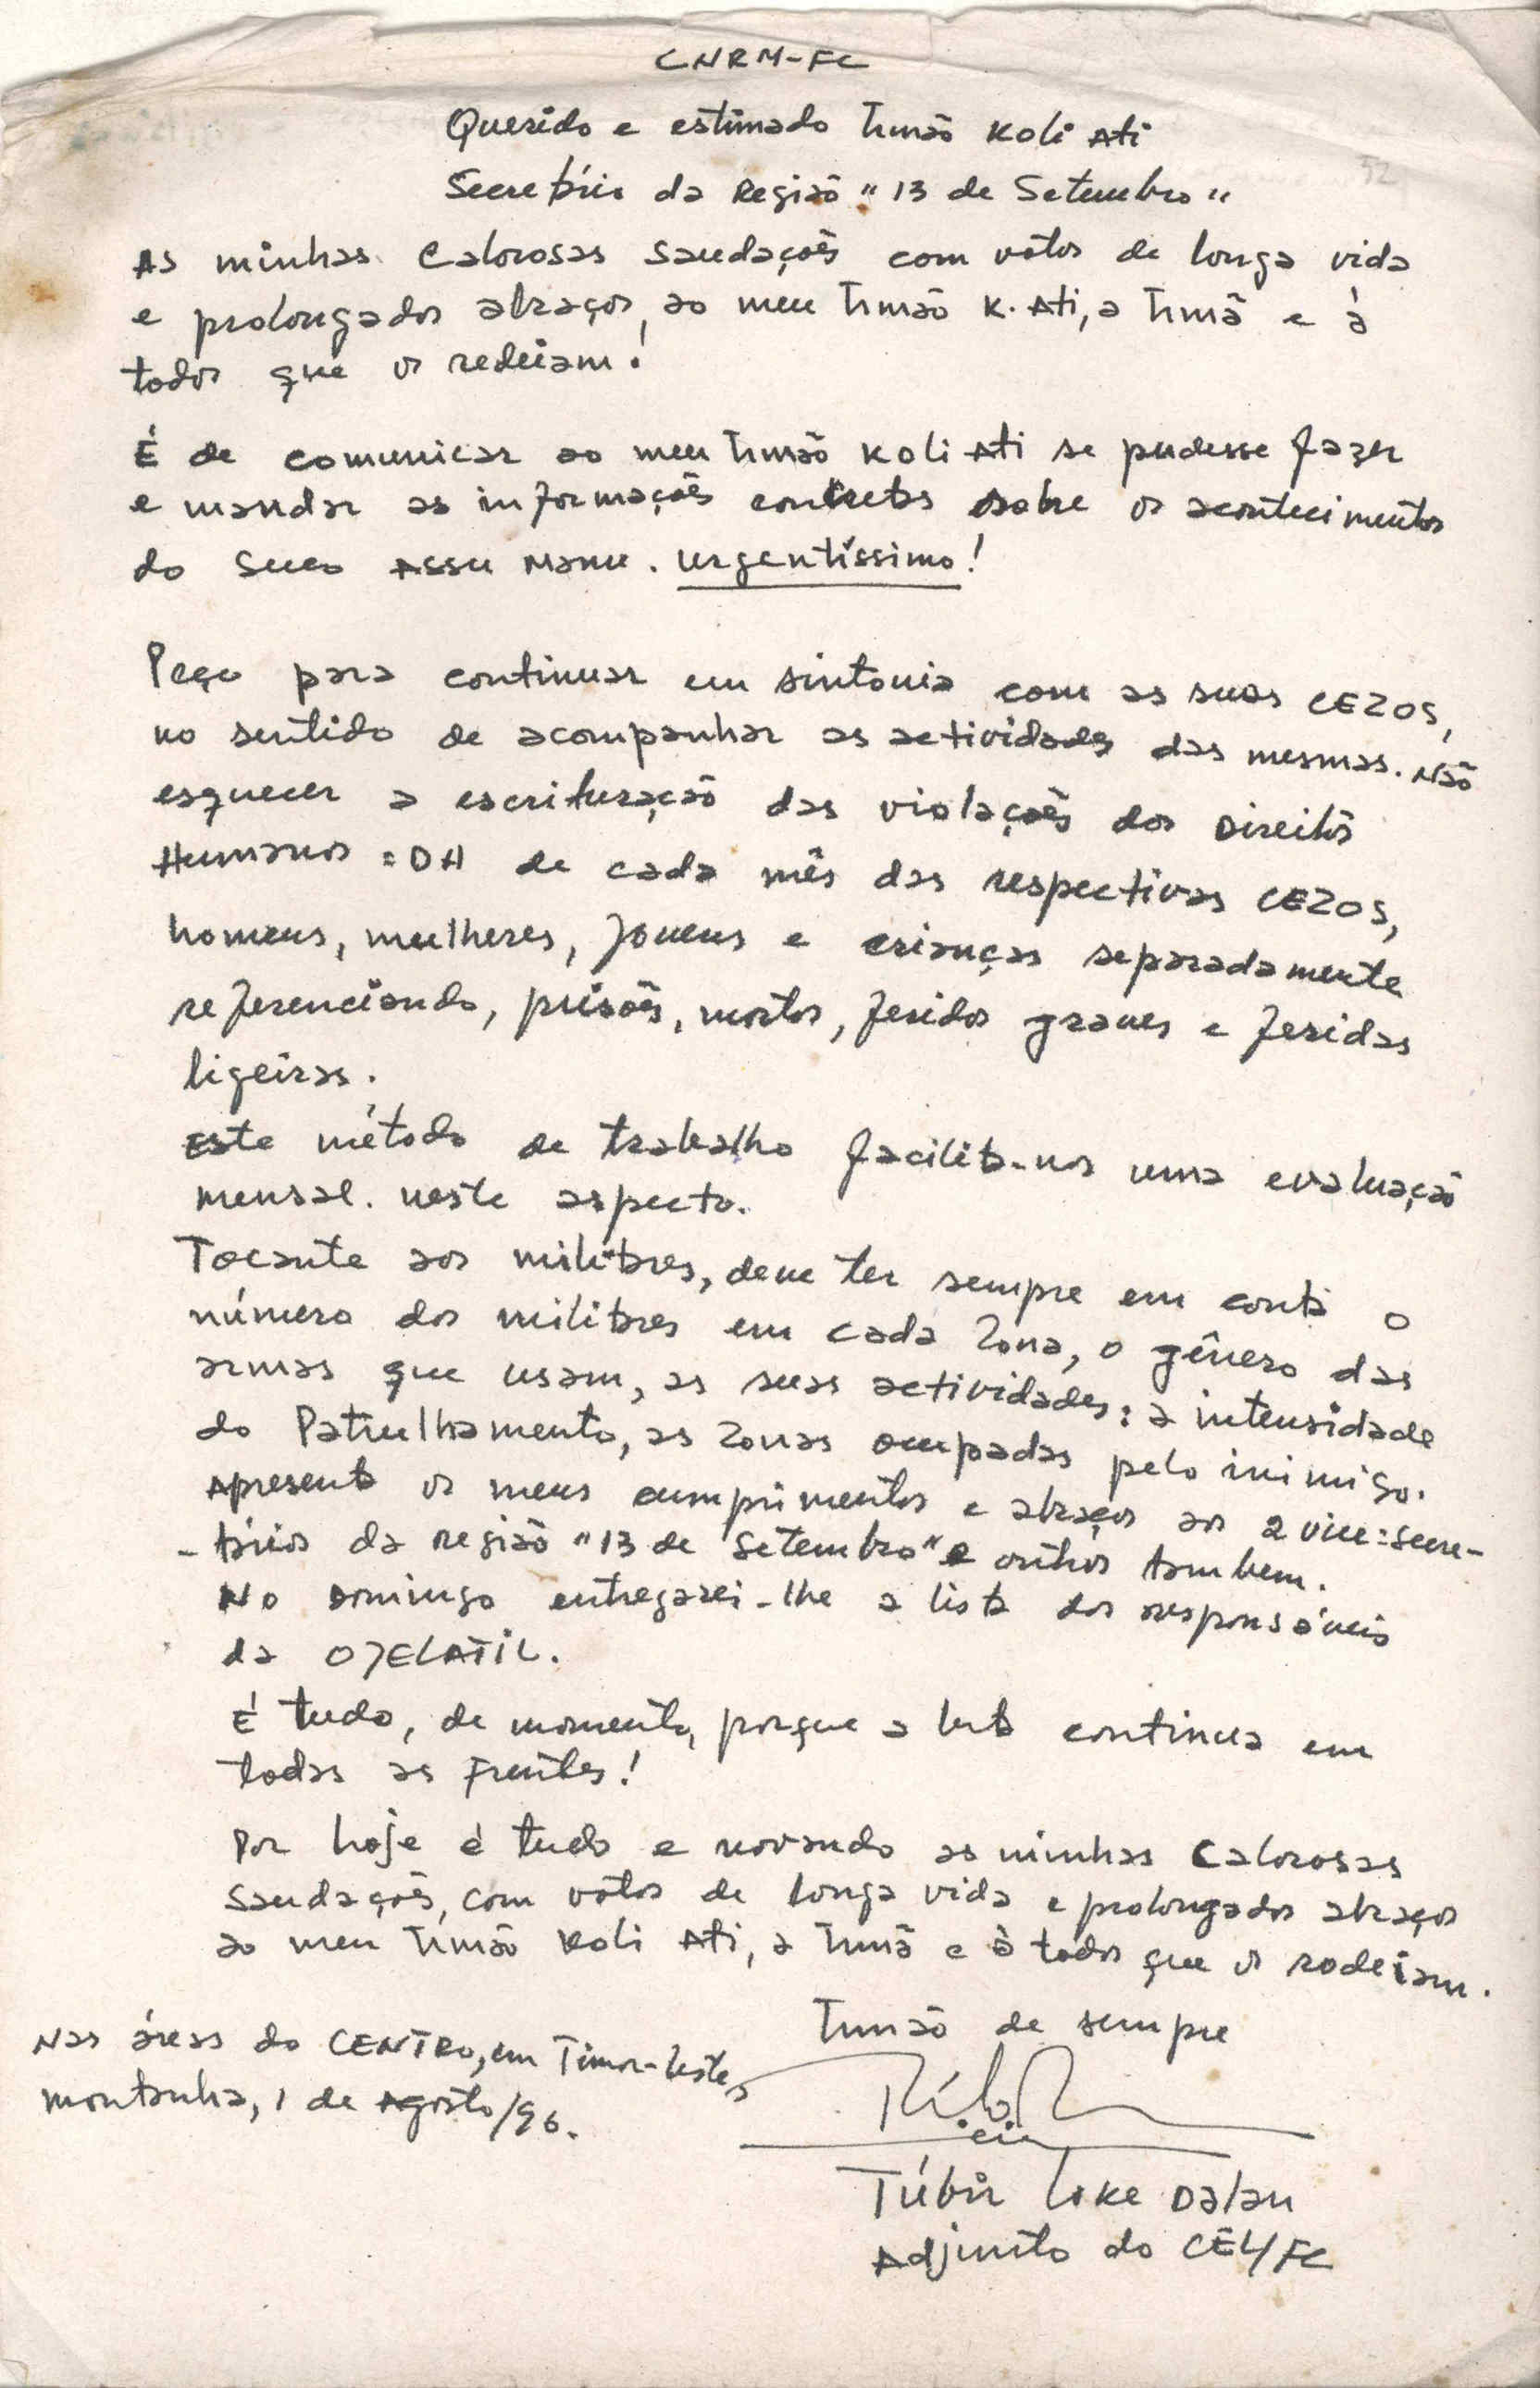 CNRM-FC
Querido e estimado Irmão Koli Ati
Secretário da Região "13 de Setembro"
52
As minhas Calorosas Saudações com votos de longa vida
e prolongados abraços, ao meu Irmão K. Ati, a Irmã e à
todos que os redeiam!
É de comunicar ao meu Irmão Koli Ati se pudesse fazer
e mandar as informações concretas sobre os acontecimentos
do Suco Assu Manu. Urgentíssimo!
Peço para continuar em sintonia com as suas CEZOS,
no sentido de acompanhar as actividades das mesmas. Não
esquecer a escrituração das violações dos Direitos
Humanos = DH de cada mês das respectivas CEZOS,
homens, mulheres, Jovens e crianças separadamente
referenciando, prisões, mortos, feridos graves e feridas
ligeiras.
Este método de trabalho facilita-nos uma evaluação
mensal. neste aspecto.
Tocante aos militares, deve ter sempre em conta o
número dos militares em cada Zona, o gênero das
armas que usam, as suas actividades: a intensidade
do Patrulhamento, as Zonas ocupadas pelo inimigo.
Apresenta os meus cumprimentos e abraços aos 2 vice=secre-
-tários da região "13 de Setembro" e outros tambem.
No Domingo entregarei-lhe a lista dos responsáveis
da OJELATIL.
É tudo, de momento, porque a luta continua em
todas as Frentes!
Por hoje é tudo e novando as minhas Calorosas
Saudações, com votos de longa vida e prolongados abraços
ao meu Irmão Koli Ati, a Irmã e à todos que os rodeiam.
Irmão de sempre
Nas áreas do CENTRO, em Timor-Leste,
montanha, 1 de Agosto/96.
Túbir Loke Dalan
Adjunto do CEL/FC